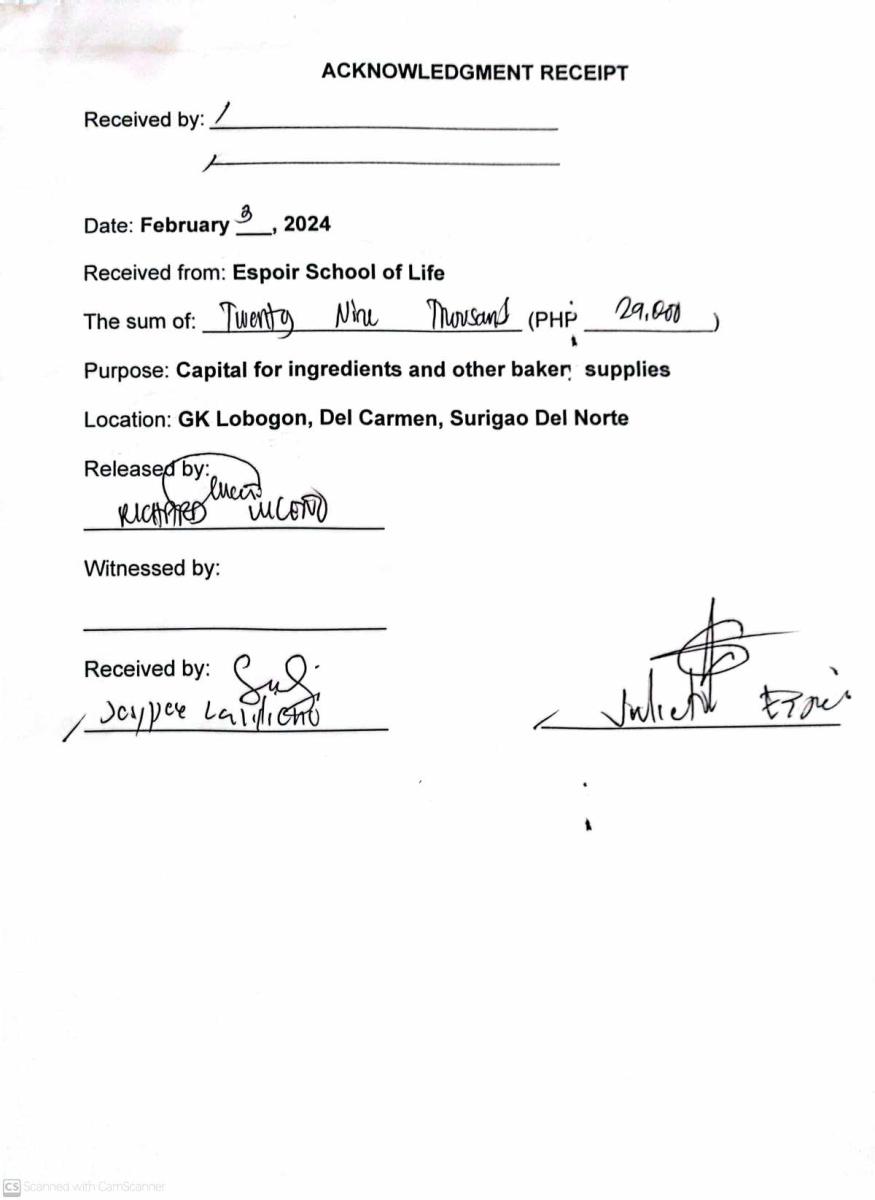 ACKNOWLEDGMENT RECEIPT
Received by:
Date: February 3, 2024
Received from: Espoir School of Life
The sum of: Twenty Nine Thousand (PHP 29,000)
Purpose: Capital for ingredients and other baker supplies
Location: GK Lobogon, Del Carmen, Surigao Del Norte
Released by:
RICHARD
Witnessed by:
Received by:
Jaypee
CS Scanned with CamScanner